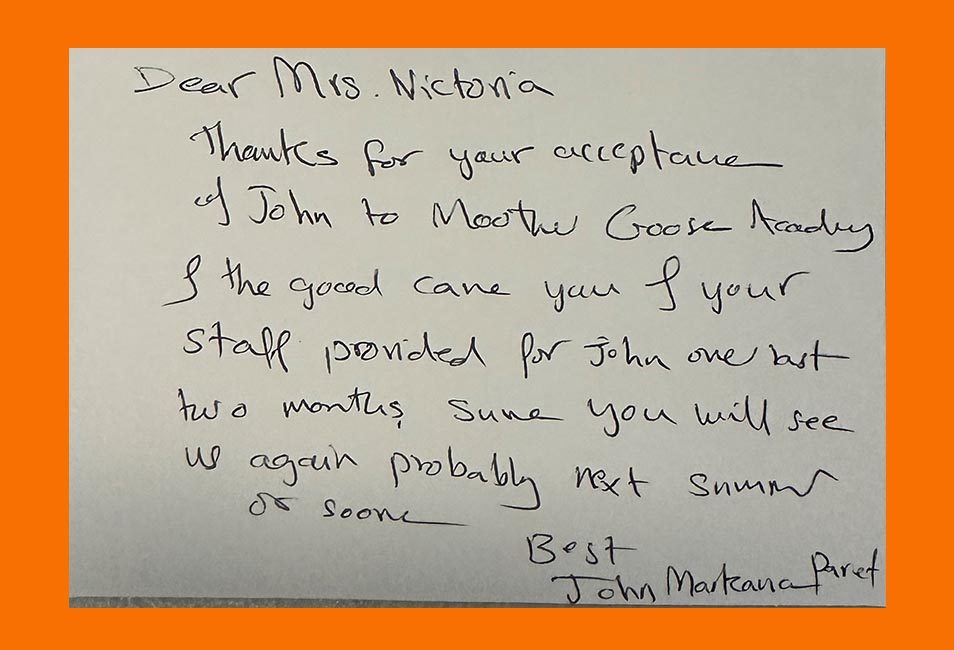 Dear Mrs. Victoria
Thanks for your acceptance
of John to Moother Goose Academy
& the good care you & your
staff provided for John over last
two months, sure you will see
us again probably next summer
or sooner
Best
John Markana Parent